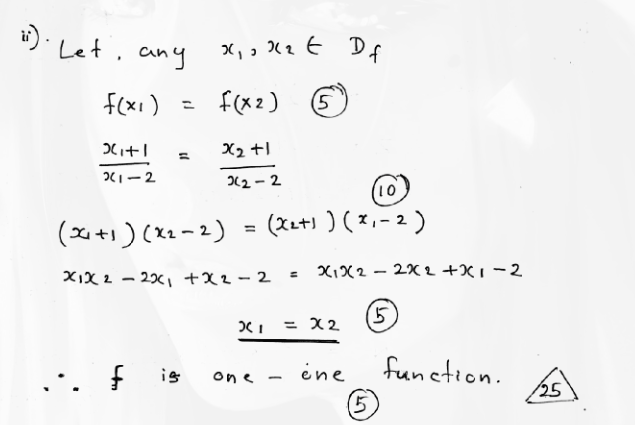 ii). Let, any x₁, x₂ ∈ Df
f(x₁) = f(x₂) 5
x₁+1 / x₁-2 = x₂+1 / x₂-2
10
(x₁+1)(x₂-2) = (x₂+1)(x₁-2)
x₁x₂ - 2x₁ + x₂ - 2 = x₁x₂ - 2x₂ + x₁ - 2
x₁ = x₂ 5
∴ f is one - one function. 25
5